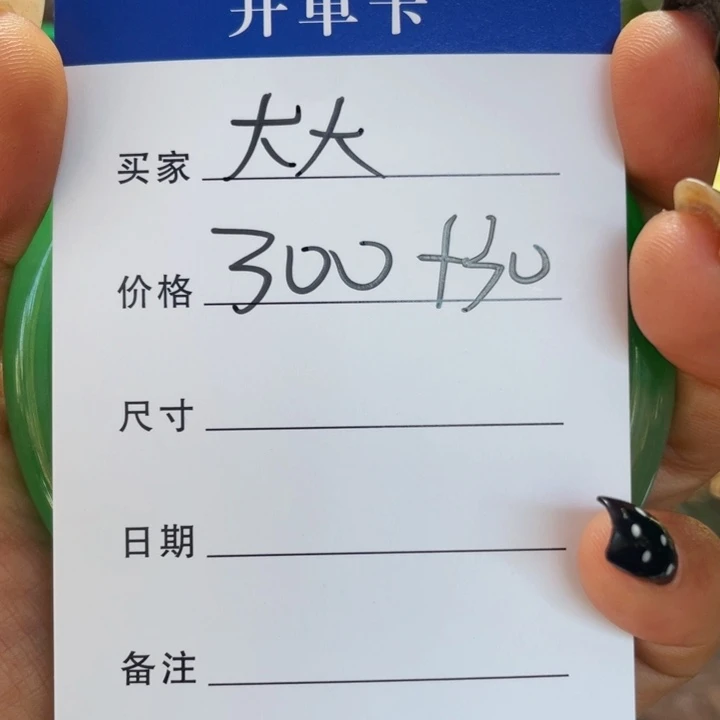 开单卡
买家 大大
价格 300 +30
尺寸
日期
备注